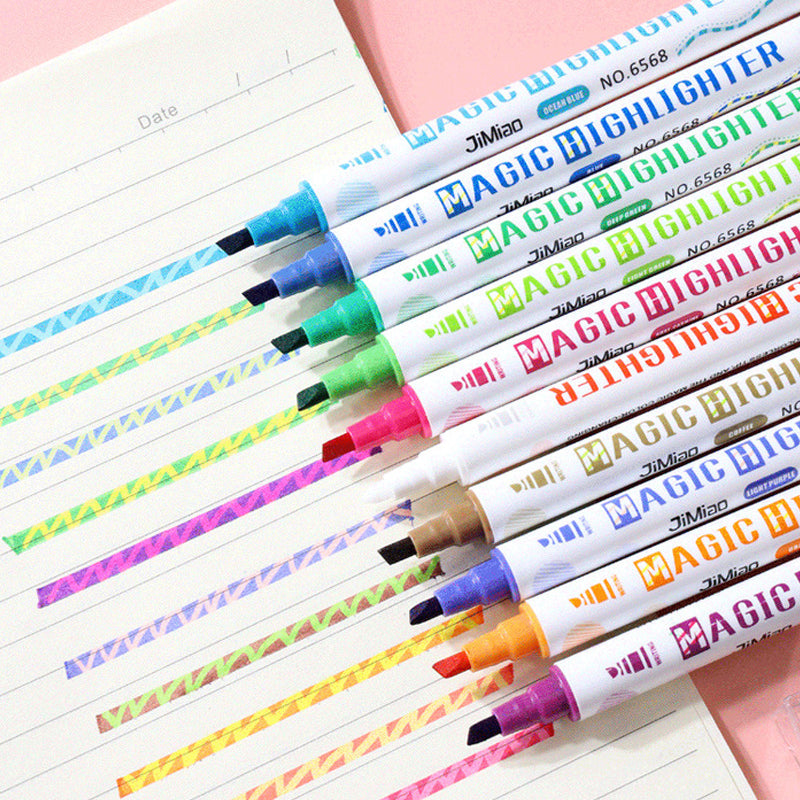 Date
MAGIC HIGHLIGHTER
JiMiao
OCEAN BLUE
NO.6568
MAGIC HIGHLIGHTER
JiMiao
BLUE
NO.6568
MAGIC HIGHLIGHTER
JiMiao
DEEP GREEN
NO.6568
MAGIC HIGHLIGHTER
JiMiao
LIGHT GREEN
NO.6568
MAGIC HIGHLIGH
JiMiao
NO.6568
HIGHLIGHTER
MAGIC HIGH
JiMiao
COFFEE
MAGIC HI
JiMiao
LIGHT PURPLE
MAGIC H
JiMiao
WRITING
MAGIC
JiMiao